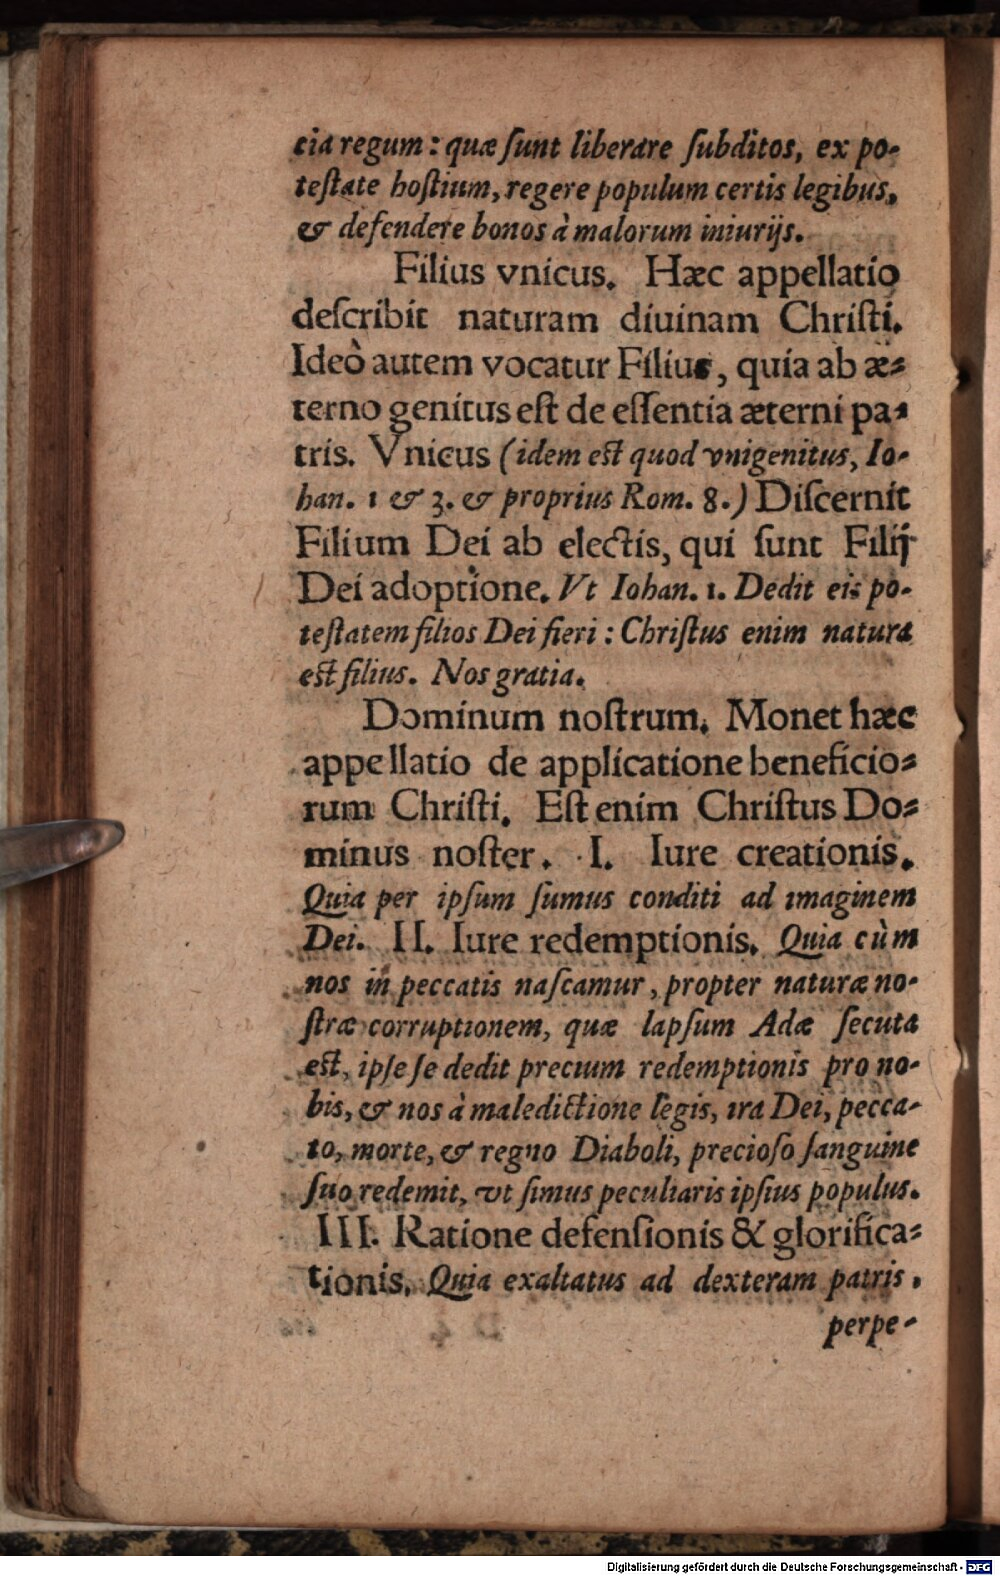 cia regum : quæ ſunt liberare ſubditos, ex po-
teſtate hoſtium, regere populum certis legibus,
& defendere bonos à malorum iniurijs.
Filius vnicus. Hæc appellatio
deſcribit naturam diuinam Chriſti.
Ideò autem vocatur Filius, quia ab æ-
terno genitus eſt de eſſentia æterni pa-
tris. Vnicus (idem eſt quod vnigenitus, Io-
han. 1 & 3. & proprius Rom. 8.) Diſcernit
Filium Dei ab electis, qui ſunt Filij
Dei adoptione. Vt Iohan. 1. Dedit eis po-
teſtatem filios Dei fieri : Chriſtus enim natura
eſt filius. Nos gratia.
Dominum noſtrum. Monet hæc
appellatio de applicatione beneficio-
rum Chriſti. Eſt enim Chriſtus Do-
minus noſter. I. Iure creationis.
Quia per ipſum ſumus conditi ad imaginem
Dei. II. Iure redemptionis. Quia cùm
nos in peccatis naſcamur, propter naturæ no-
ſtræ corruptionem, quæ lapſum Adæ ſecuta
eſt, ipſe ſe dedit precium redemptionis pro no-
bis, & nos à maledictione legis, ira Dei, pecca-
to, morte, & regno Diaboli, precioſo ſanguine
ſuo redemit, vt ſimus peculiaris ipſius populus.
III. Ratione defenſionis & glorifica-
tionis. Quia exaltatus ad dexteram patris.
perpe-
Digitalisierung gefördert durch die Deutsche Forschungsgemeinschaft - DFG